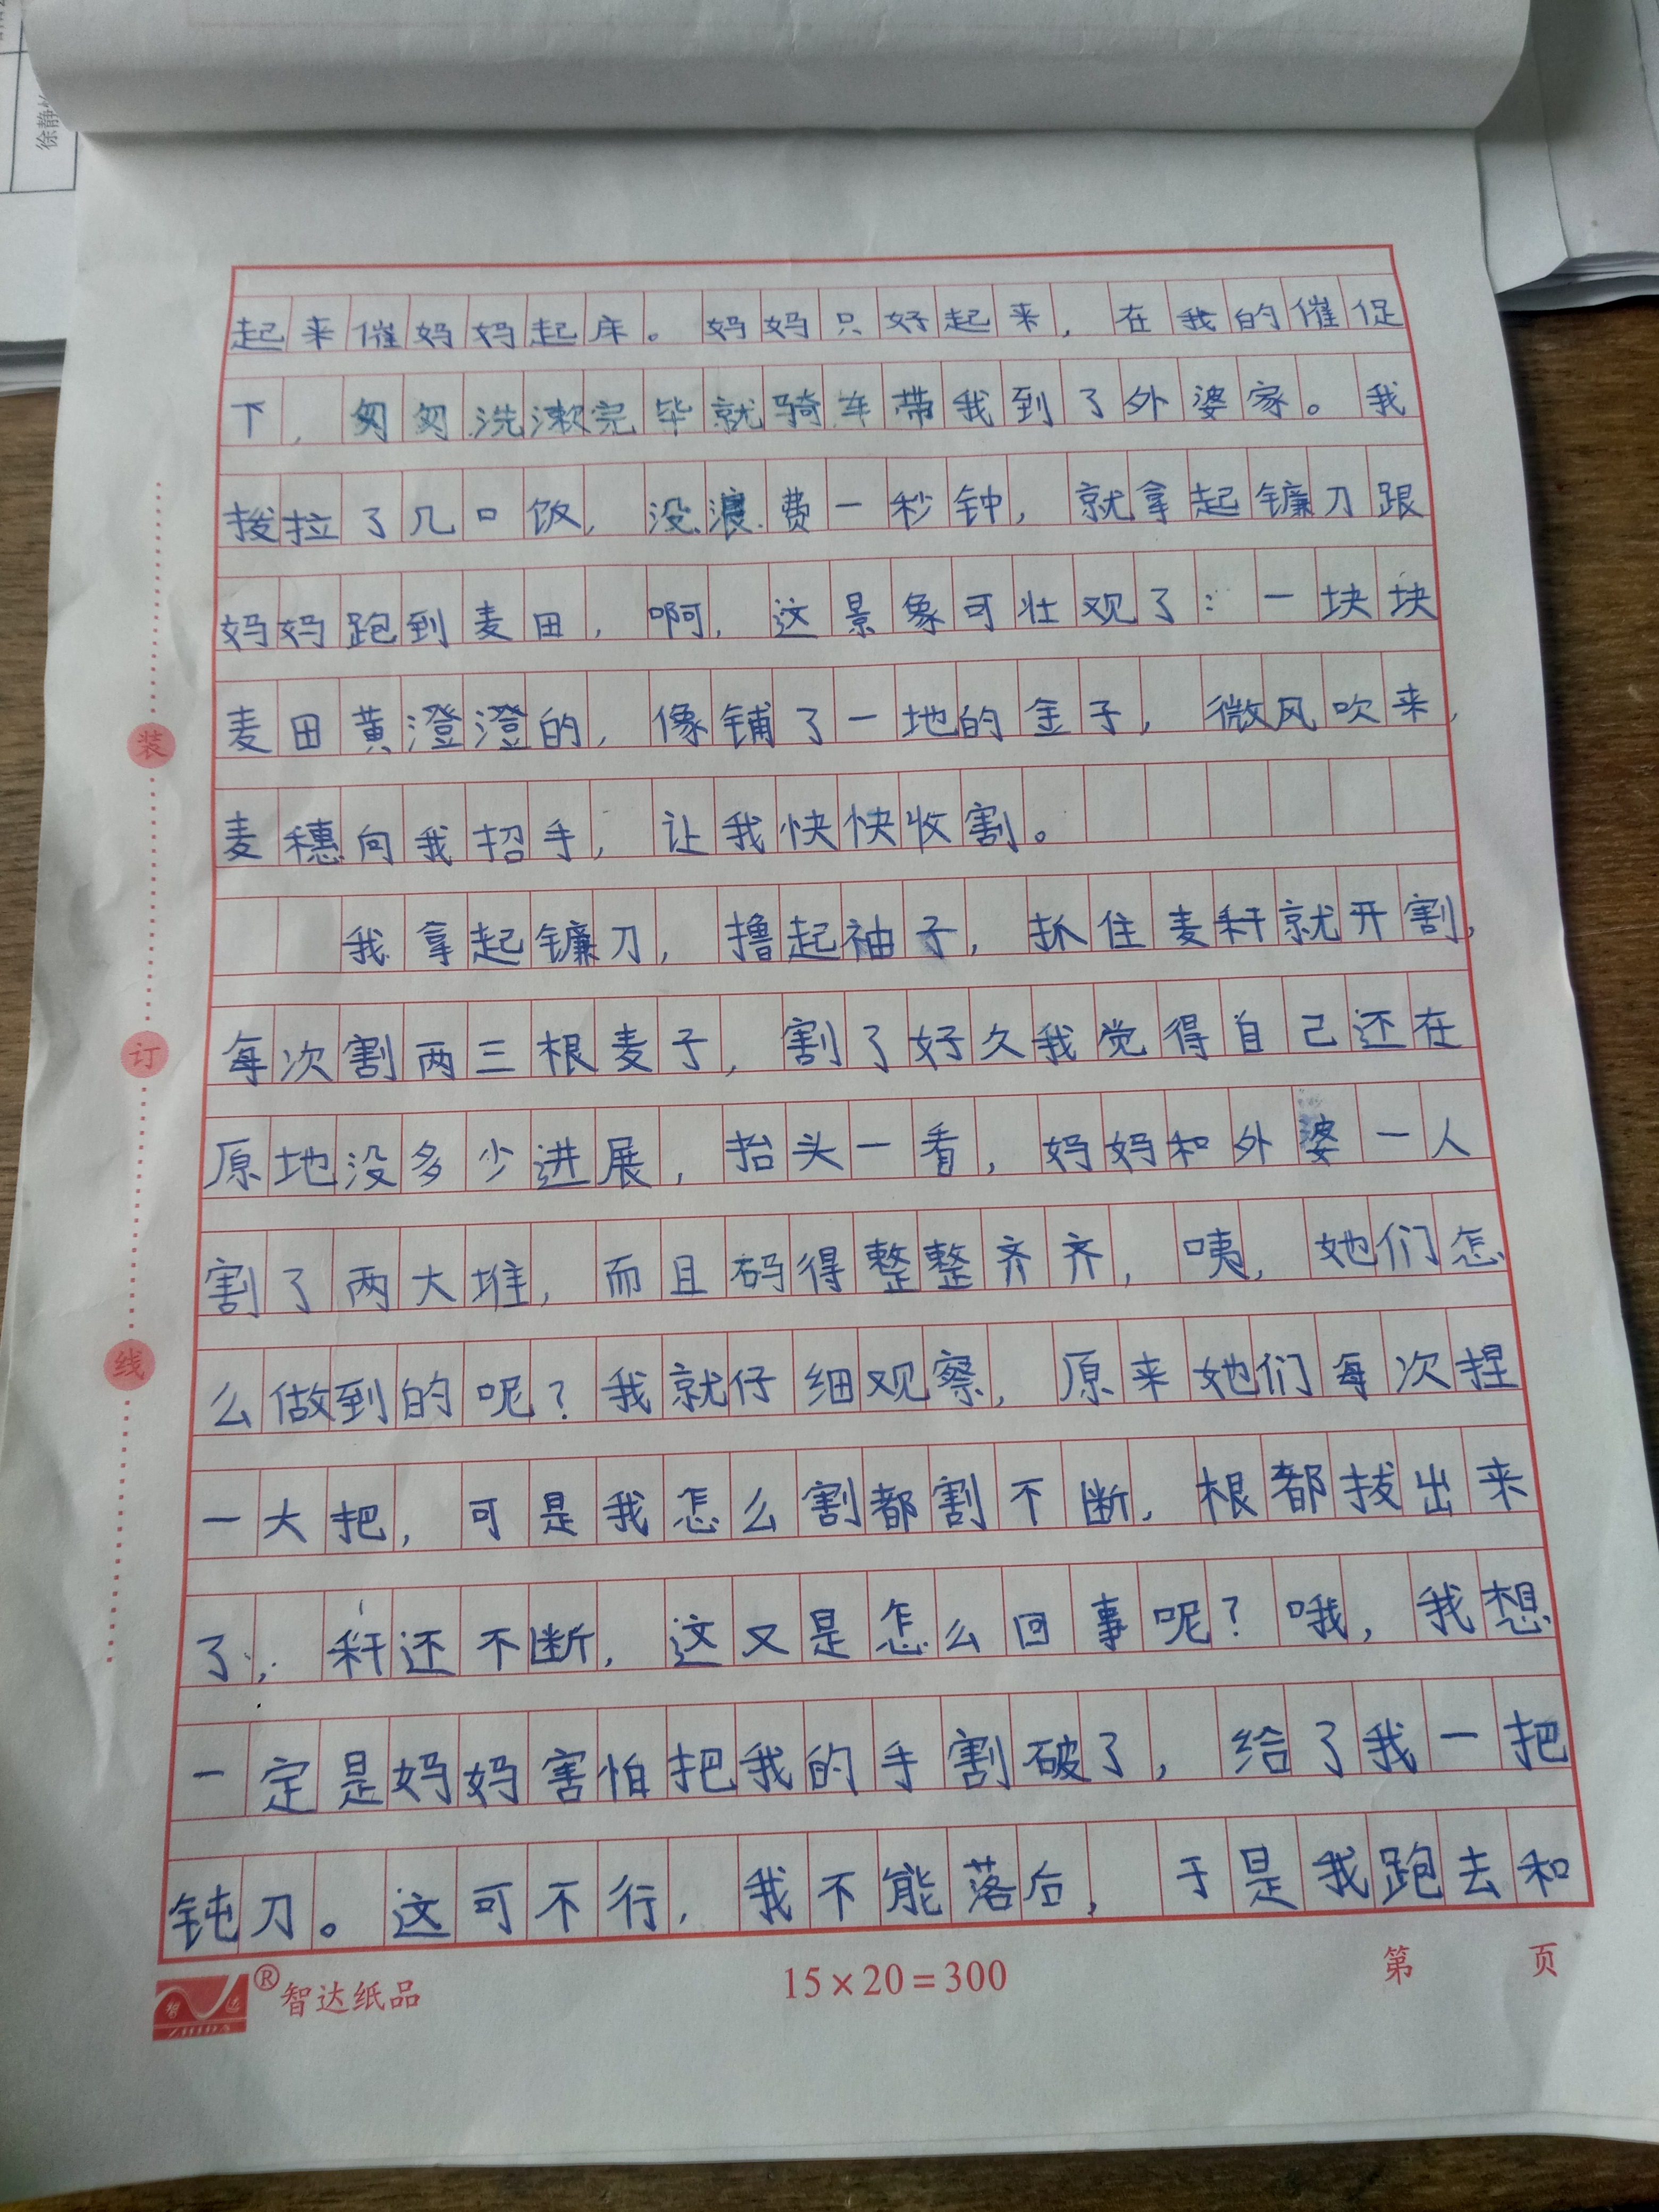 徐静
起来催妈妈起床。妈妈只好起来，在我的催促
下，匆匆洗漱完毕就骑车带我到了外婆家。我
拨拉了几口饭，没浪费一秒钟，就拿起镰刀跟
妈妈跑到麦田，啊，这景象可壮观了：一块块
麦田黄澄澄的，像铺了一地的金子，微风吹来，
麦穗向我招手，让我快快收割。
我拿起镰刀，撸起袖子，抓住麦秆就开割，
每次割两三根麦子，割了好久我觉得自己还在
原地没多少进展，抬头一看，妈妈和外婆一人
割了两大堆，而且码得整整齐齐，咦，她们怎
么做到的呢？我就仔细观察，原来她们每次捏
一大把，可是我怎么割都割不断，根都拔出来
了，秆还不断，这又是怎么回事呢？哦，我想
一定是妈妈害怕把我的手割破了，给了我一把
钝刀。这可不行，我不能落后，于是我跑去和
装
订
线
智达
ZHIDA
®智达纸品
15×20=300
第 页